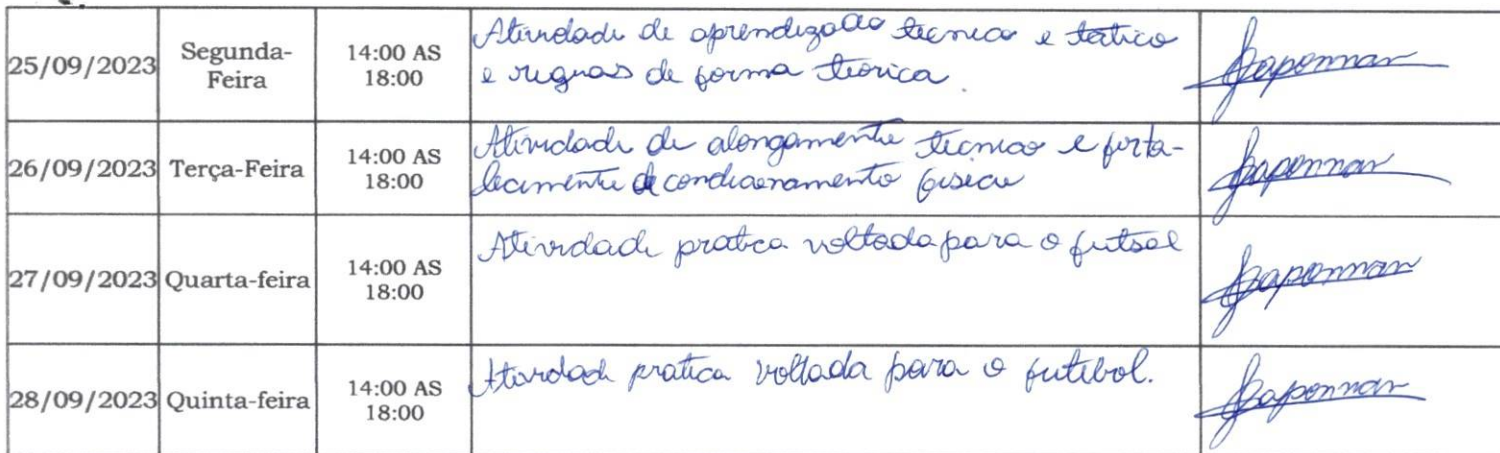 25/09/2023 Segunda-Feira 14:00 AS 18:00 Atividade de aprendizado tecnico e tatico
e regras de forma teorica.
26/09/2023 Terça-Feira 14:00 AS 18:00 Atividade de alongamento tecnico e forta-
lecimento de condicionamento fisico
27/09/2023 Quarta-feira 14:00 AS 18:00 Atividade pratica voltada para o futsal
28/09/2023 Quinta-feira 14:00 AS 18:00 Atividade pratica voltada para o futebol.